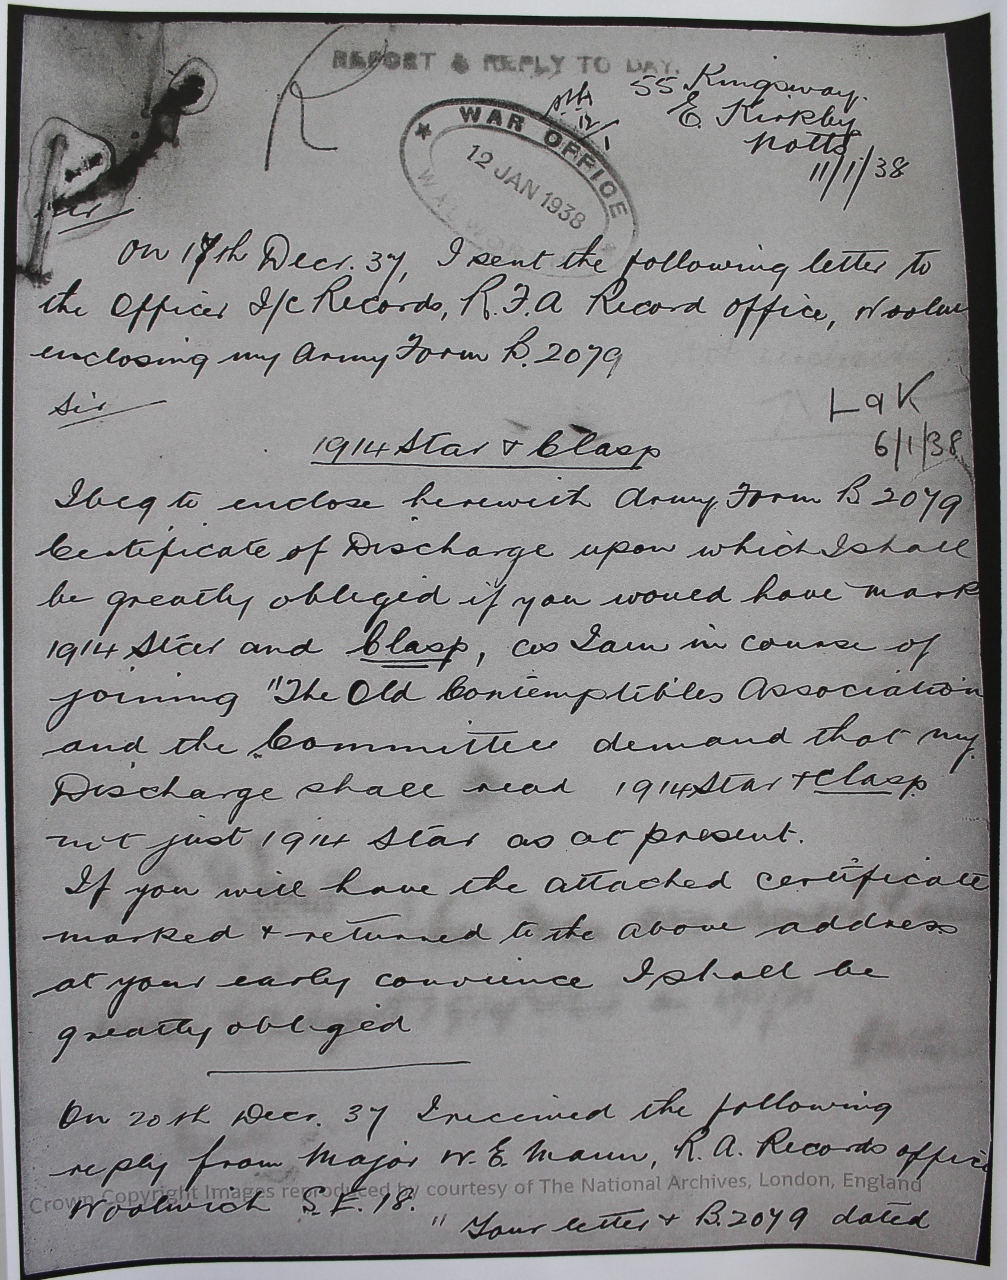 REPORT & REPLY TO DAY.
R
55 Kingsway.
E. Kirkby
Notts
11/1/38
12/1
WAR OFFICE
12 JAN 1938
Sir
On 17th Decr. 37, I sent the following letter to
the Officer I/C Records, R.F.A Record office, Woolw
enclosing my Army Form B. 2079
Sir
L a K
6/1/38
1914 Star & Clasp
I beg to enclose herewith Army Form B 2079
Certificate of Discharge upon which I shall
be greatly obliged if you would have mark
1914 Star and Clasp, as I am in course of
joining "The Old Contemptibles Association
and the Committee demand that my
Discharge shall read 1914 Star & Clasp
not just 1914 Star as at present.
If you will have the attached certificate
marked & returned to the above address
at your early convience I shall be
greatly obliged
On 20th Decr. 37 I received the following
reply from Major W. E. Mann, R. A. Records office
Woolwich S.E. 18.
"Your letter & B. 2079 dated
Crown Copyright Images reproduced by courtesy of The National Archives, London, England